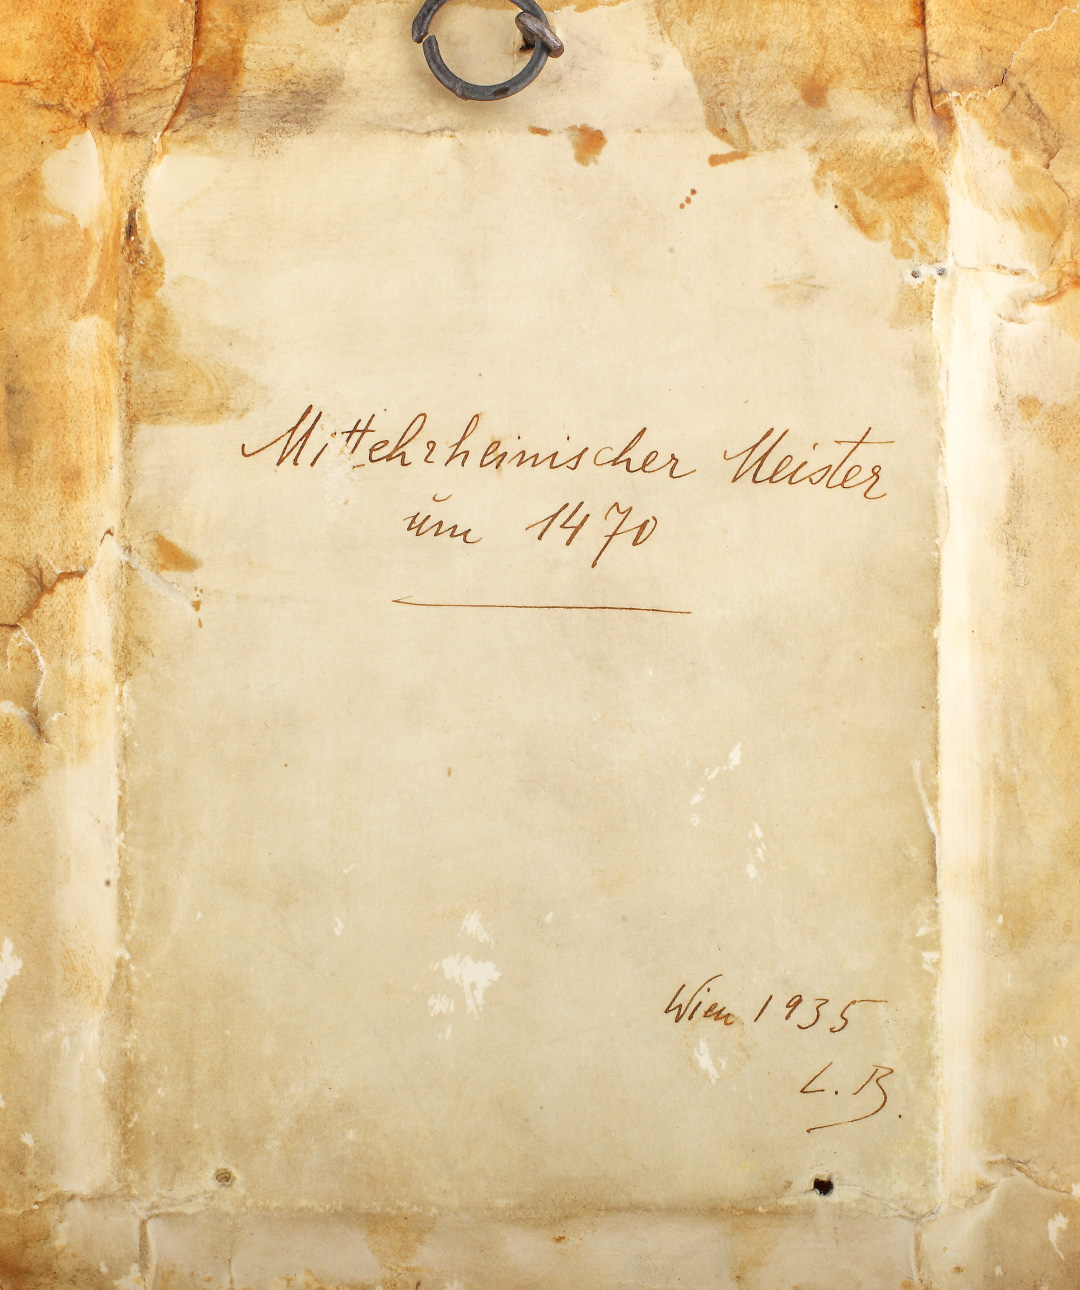 Mittelrheinischer Meister
um 1470
Wien 1935
L. B.